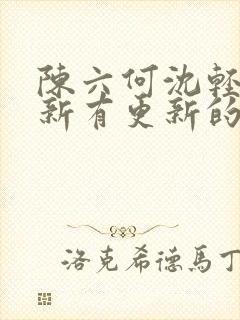 陳六何沈輕
新有更新的
洛克希德馬丁